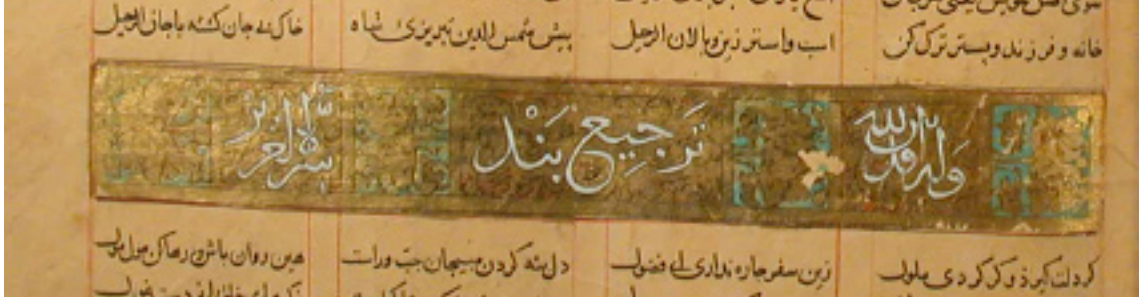 خانه و فرزند و بستر ترک کن اسب و استر زین و پالان الرحیل پیش شمس الدین تبریزی شاه خاک بی جان کشته با جان الرحیل
وله قدس الله ترجیع بند سره العزیز
کر دلت کیرد و کر کردی ملول زین سفر چاره نداری ای فضول دل بنه کردن مپیچان چپ و راست هین روان باش و رها کن مول مول